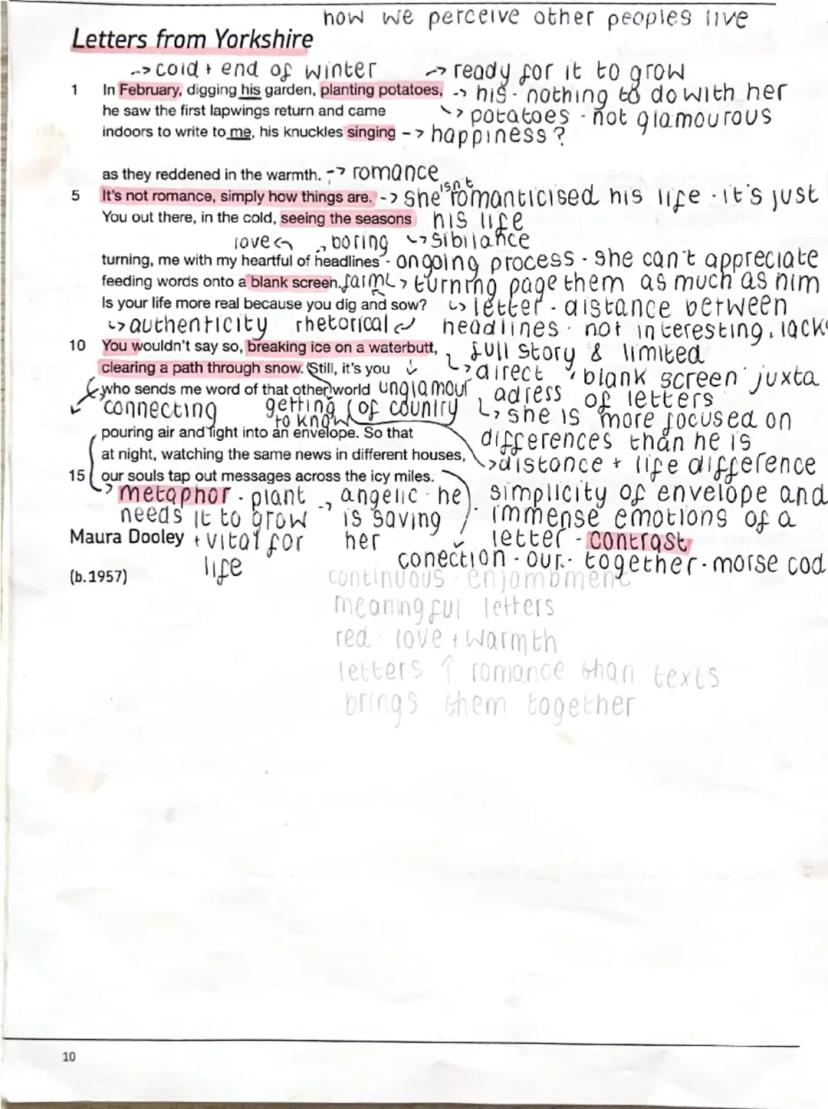 how we perceive other peoples live
Letters from Yorkshire
-> cold + end of winter -> ready for it to grow
1 In February, digging his garden, planting potatoes, -> his - nothing to do with her
he saw the first lapwings return and came -> potatoes - not glamourous
indoors to write to me, his knuckles singing -> happiness?
as they reddened in the warmth. -> romance
5 It's not romance, simply how things are. -> she isn't romanticised his life - it's just
You out there, in the cold, seeing the seasons his life
love boring -> sibilance
turning, me with my heartful of headlines - ongoing process - she can't appreciate
feeding words onto a blank screen. farm -> turning page them as much as him
Is your life more real because you dig and sow? -> letter - distance between
-> authenticity rhetorical headlines - not interesting, lack
10 You wouldn't say so, breaking ice on a waterbutt, full story & limited
clearing a path through snow. Still, it's you -> direct blank screen juxta
who sends me word of that other world unglamour adress of letters
connecting getting to know of country -> she is more focused on
pouring air and light into an envelope. So that differences than he is
at night, watching the same news in different houses, -> distance + life difference
15 our souls tap out messages across the icy miles.
-> metaphor - plant -> angelic - he simplicity of envelope and
needs it to grow is saving immense emotions of a
Maura Dooley + vital for her letter - contrast
life conection - our - together - morse cod
(b.1957)
continuous - enjambment
meaningful letters
red - love + warmth
letters ↑ romance than texts
brings them together
10